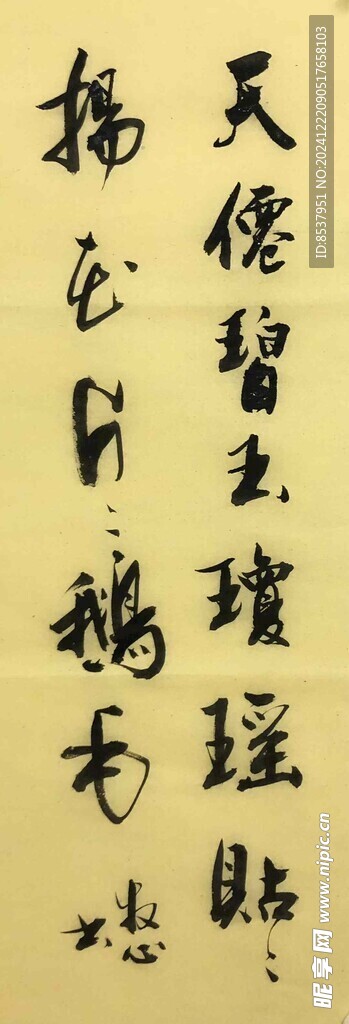 天僊碧玉瓊瑤貼〻
揚花片〻鵝毛
书
ID:8537951 NO:20241222090517658103
昵享网 www.nipic.cn